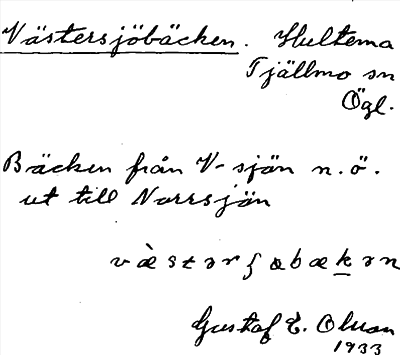 Västersjöbäcken. Hultema
Tjällmo sn
Ögl.
Bäcken från V-sjön n.ö.
ut till Norrsjön
væ̀stərʃøbækən
Gustaf E. Olsson
1933